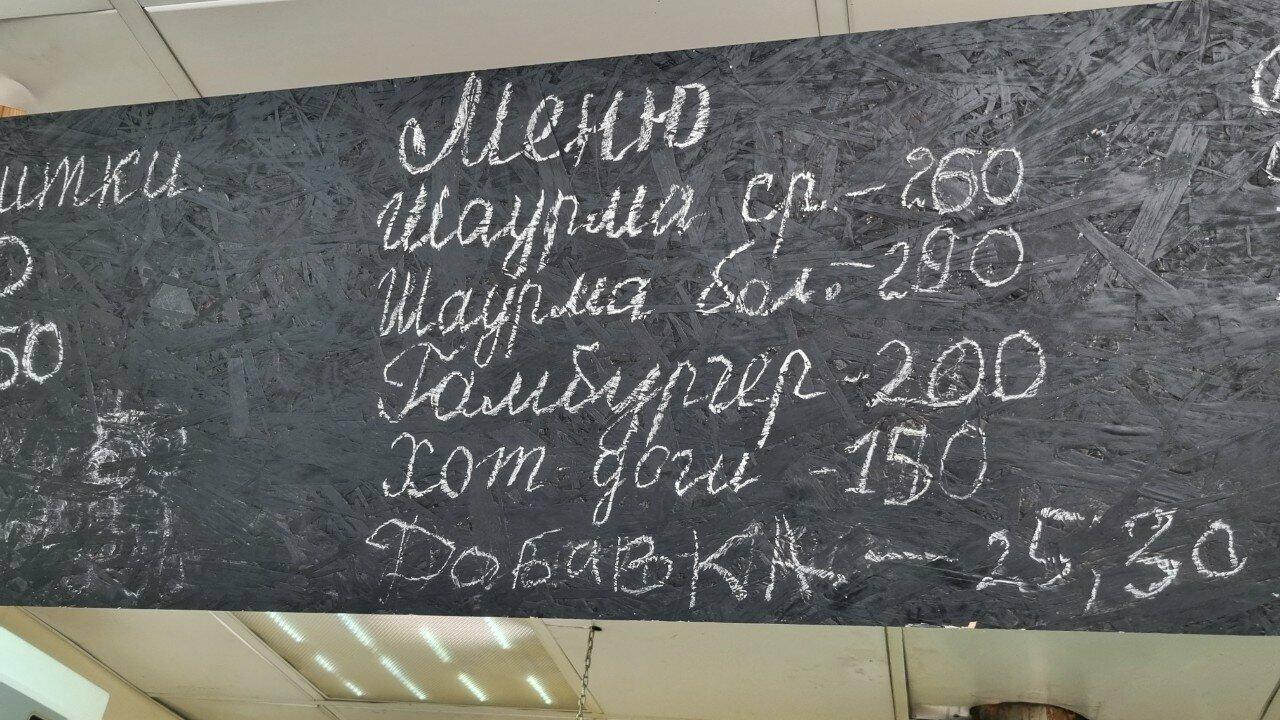 Меню
Шаурма ср. - 260
Шаурма бол. - 290
Гамбургер - 200
Хот доги - 150
Добавка. — 25,30
50